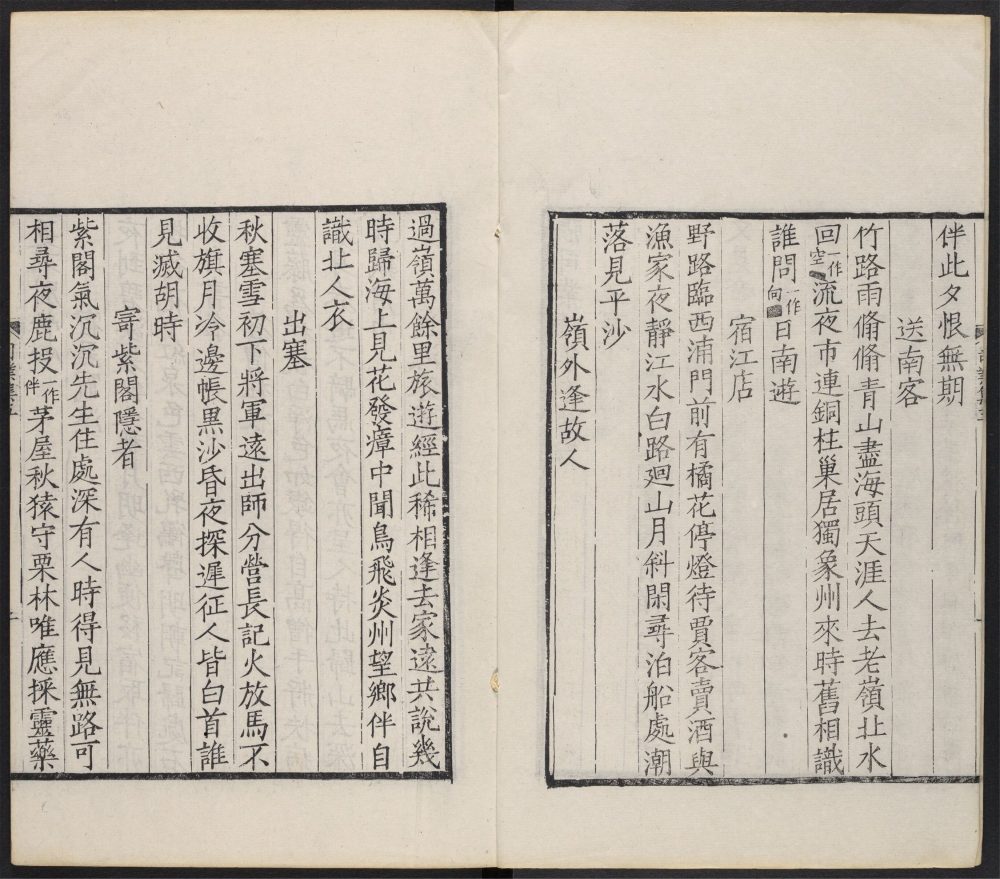 伴此夕恨無期
送南客
竹路雨脩脩青山盡海頭天涯人去老嶺北水
回一作空流夜市連銅柱巢居獨象州來時舊相識
誰問一作向日南遊
宿江店
野路臨西浦門前有橘花停燈待賈客賣酒與
漁家夜靜江水白路廻山月斜閑尋泊船處潮
落見平沙
嶺外逢故人
過嶺萬餘里旅遊經此稀相逢去家遠共說幾
時歸海上見花發瘴中聞鳥飛炎州望鄉伴自
識北人衣
出塞
秋塞雪初下將軍遠出師分營長記火放馬不
收旗月冷邊帳黑沙昏夜探遲征人皆白首誰
見滅胡時
寄紫閣隱者
紫閣氣沉沉先生住處深有人時得見無路可
相尋夜鹿投一作伴茅屋秋猿守栗林唯應採靈藥